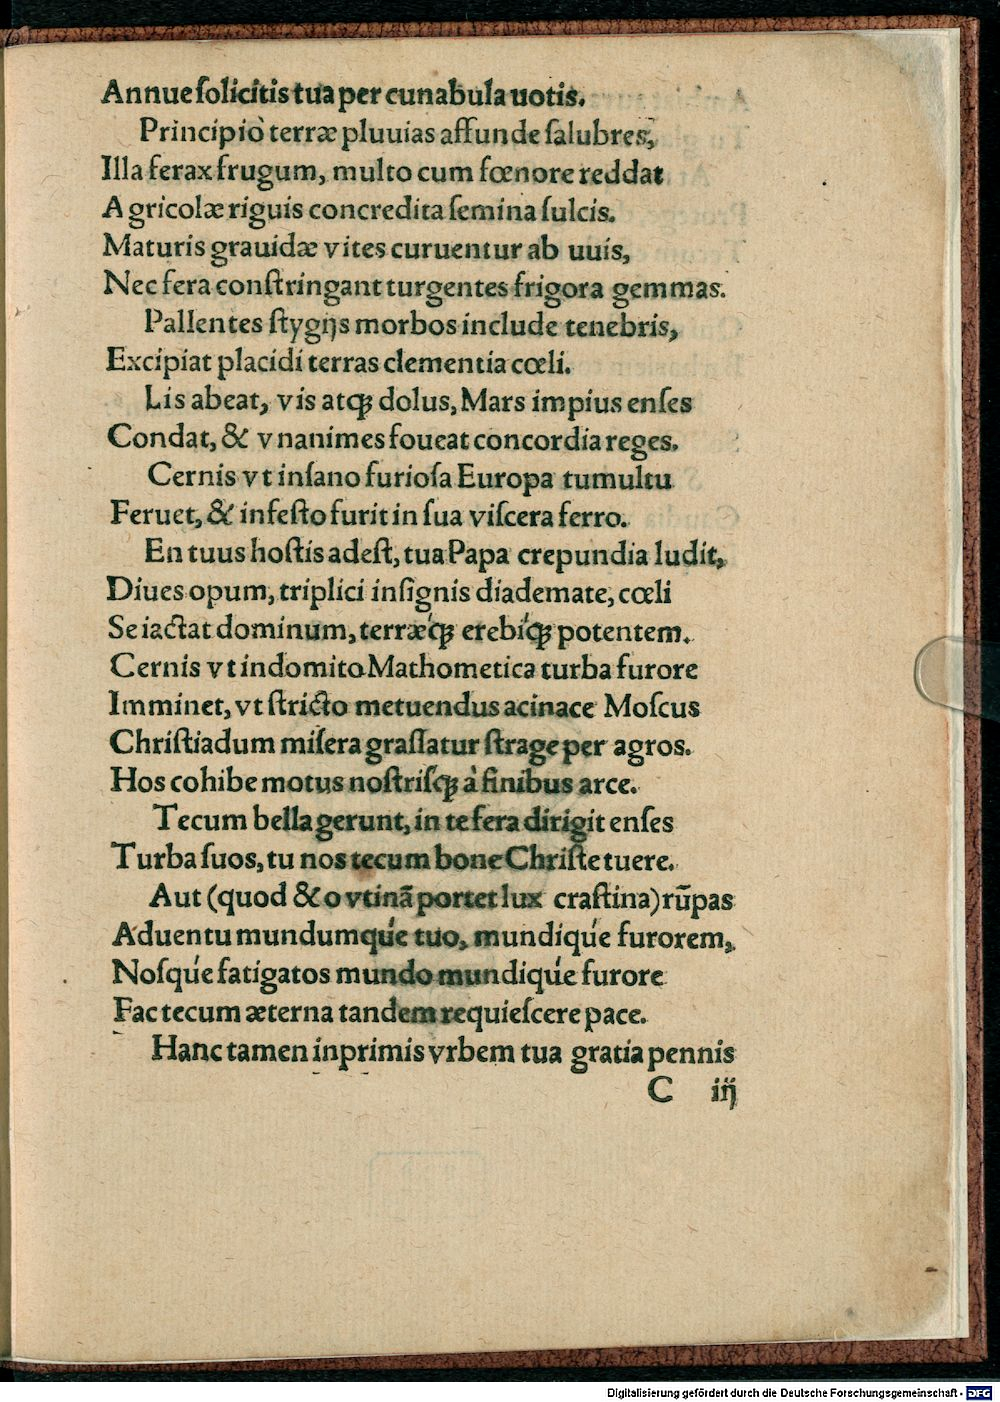 Annue ſolicitis tua per cunabula uotis.
Principiò terræ pluuias affunde ſalubres,
Illa ferax frugum, multo cum fœnore reddat
Agricolæ riguis concredita ſemina ſulcis.
Maturis grauidæ vites curuentur ab uuis,
Nec fera conſtringant turgentes frigora gemmas.
Pallentes ſtygijs morbos include tenebris,
Excipiat placidi terras clementia cœli.
Lis abeat, vis atꝙ dolus, Mars impius enſes
Condat, & vnanimes foueat concordia reges.
Cernis vt inſano furioſa Europa tumultu
Feruet, & infeſto furit in ſua viſcera ferro.
En tuus hoſtis adeſt, tua Papa crepundia ludit,
Diues opum, triplici inſignis diademate, cœli
Se iactat dominum, terræꝙ́ erebiꝙ́ potentem.
Cernis vt indomito Mathometica turba furore
Imminet, vt ſtricto metuendus acinace Moſcus
Chriſtiadum miſera graſſatur ſtrage per agros.
Hos cohibe motus noſtriſꝙ à finibus arce.
Tecum bella gerunt, in te fera dirigit enſes
Turba ſuos, tu nos tecum bone Chriſte tuere.
Aut (quod & o vtinã portet lux craſtina) rũpas
Aduentu mundumqúe tuo, mundiqúe furorem,
Noſqúe fatigatos mundo mundiqúe furore
Fac tecum æterna tandem requieſcere pace.
Hanc tamen inprimis vrbem tua gratia pennis
C iij
Digitalisierung gefördert durch die Deutsche Forschungsgemeinschaft - DFG